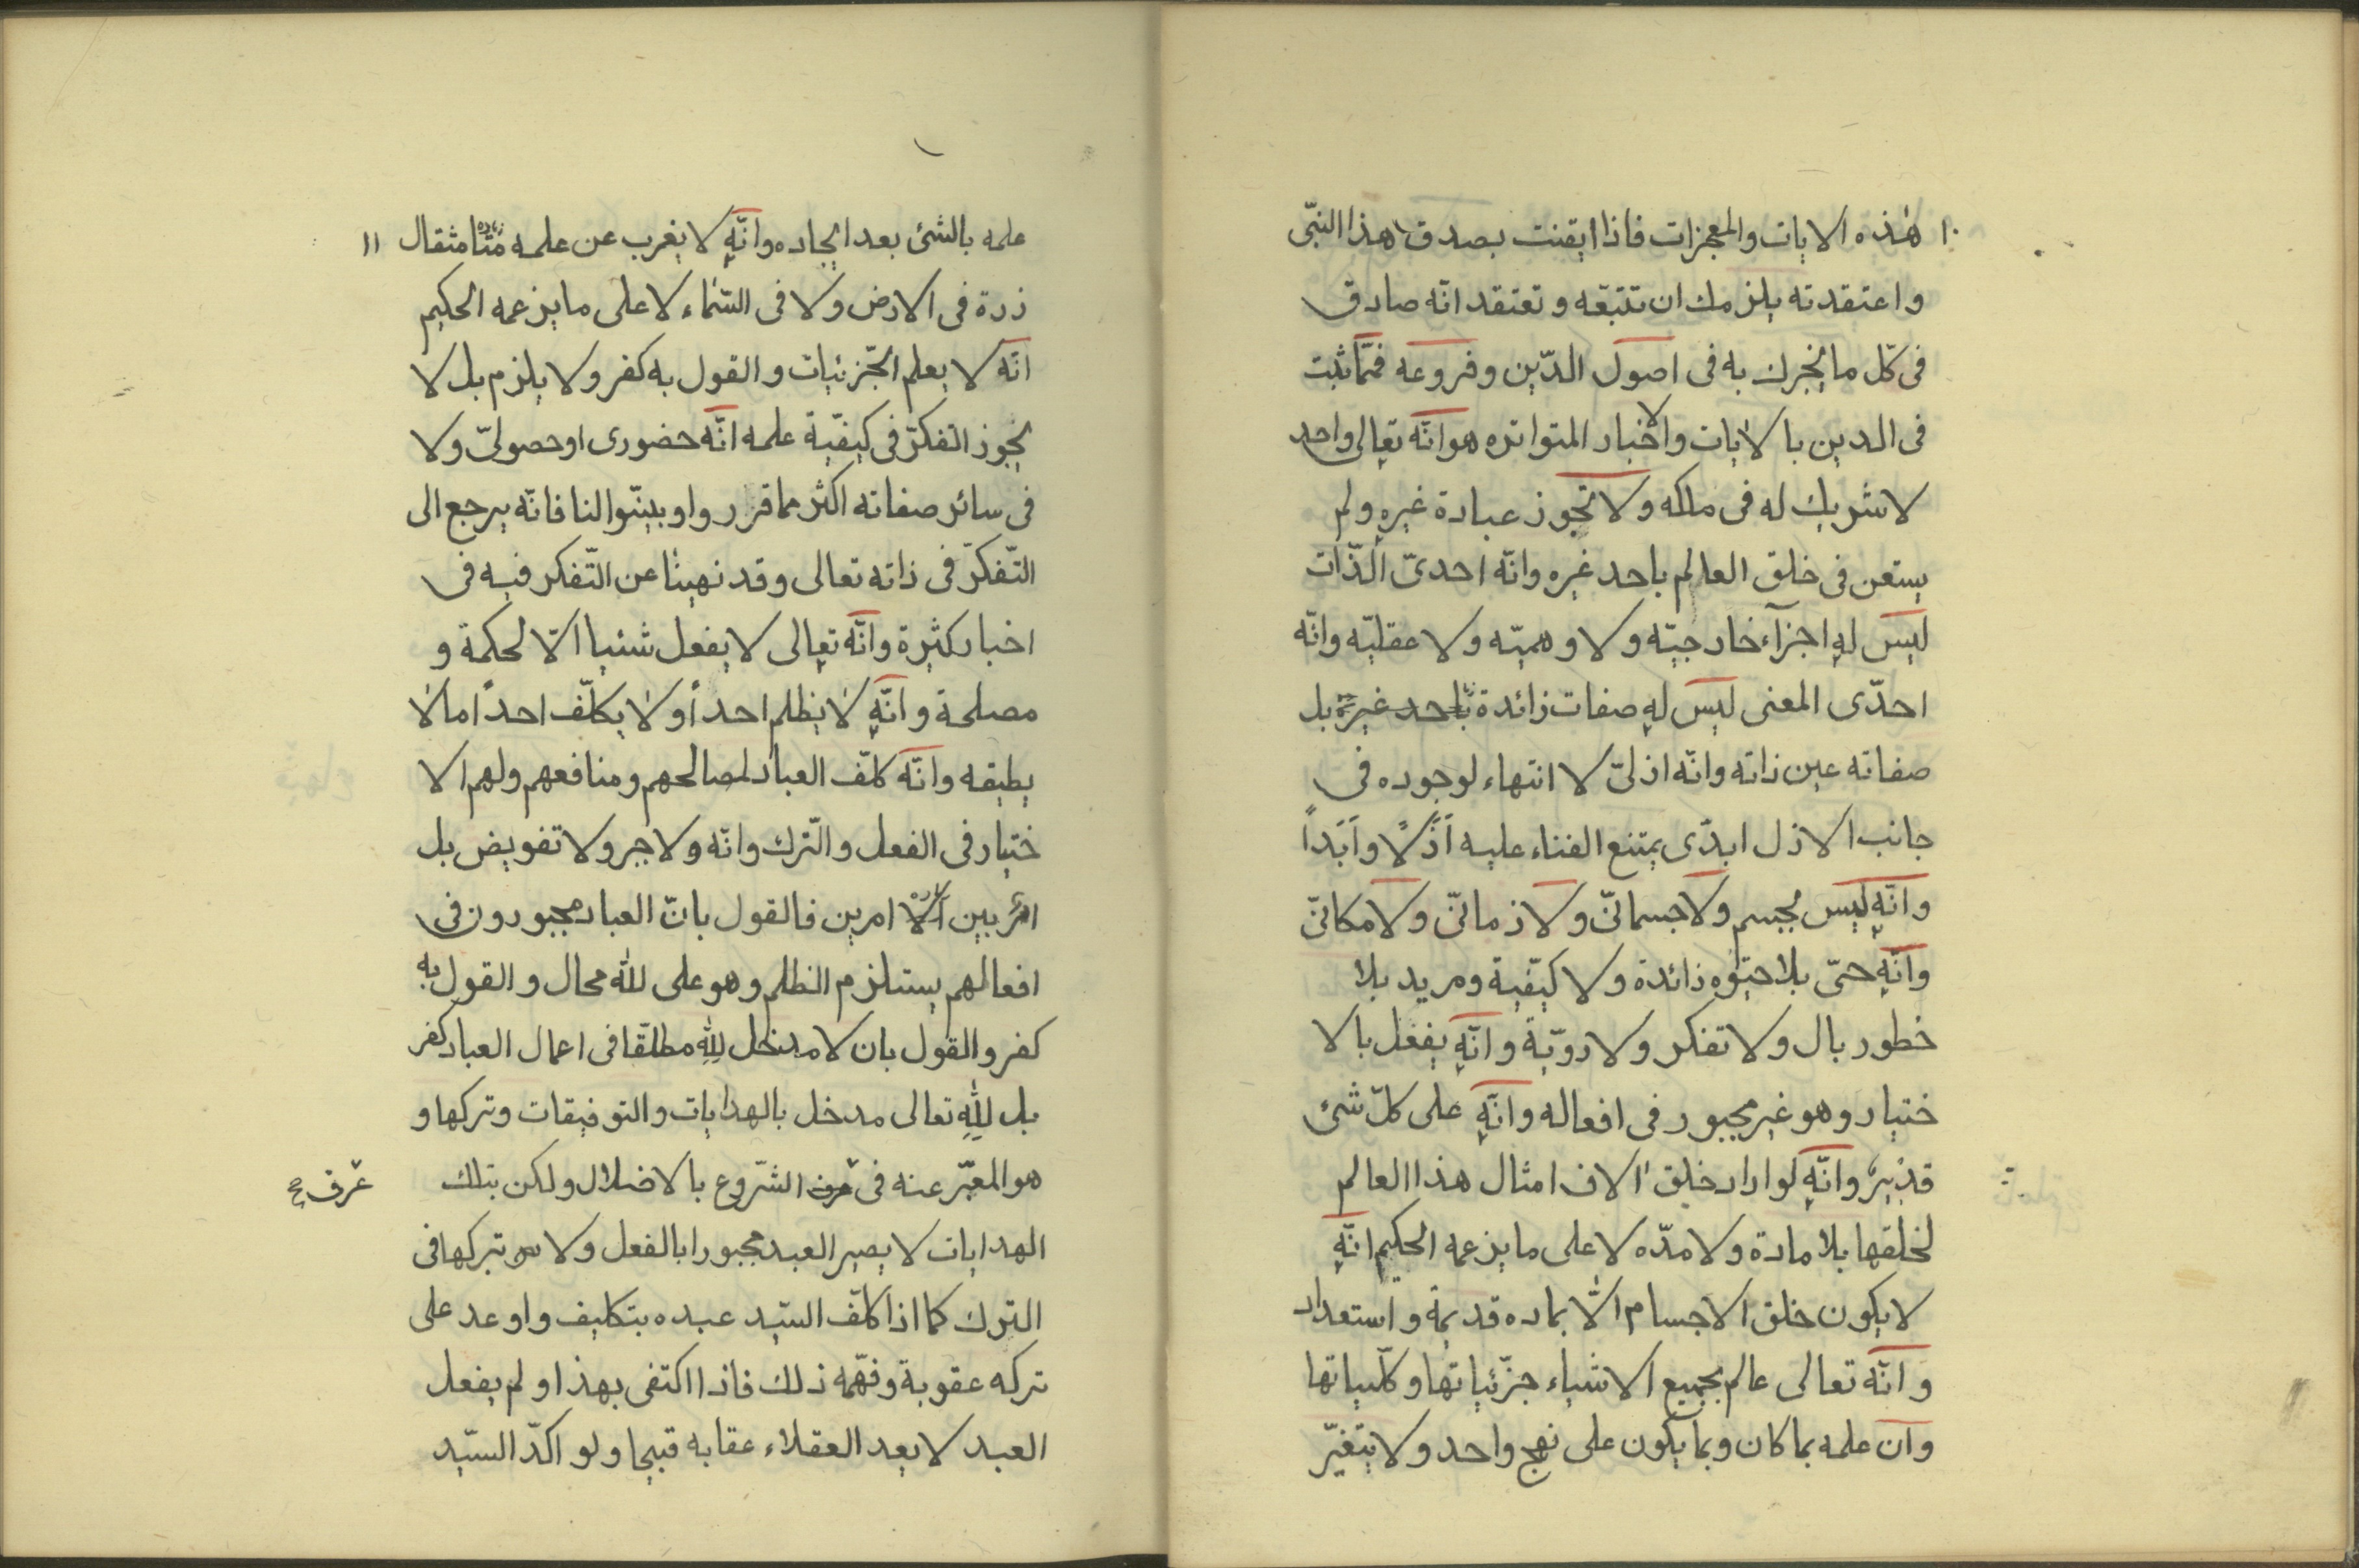 ١٠
هٰذه الايات والمعجزات فاذا ايقنت بصدق هذا النبّى
واعتقدته يلزمك ان تتبّعه و تعتقد انّه صادق
فى كّل ما يخبرك به فى اصول الدّين و فروعه فمّما ثبت
فى الدين بالايات والاخبار المتواتره هو انّه تعالى واحد
لا شريك له فى ملكه ولا تجوز عبادة غيره ولم
يستعن فى خلق العالم باحد غيره وانّه احدىّ الّذات
ليس له اجزآء خارجيّه ولا وهميّه ولا عقليّه وانّه
احدّى المعنى ليس له صفات زائدة باحد غيره بل
صفاته عين ذاته وانّه ازلىّ لا انتهاء لوجوده فى
جانب الازل ابدّى يمتنع الفناء عليه اَزَلًا واَبَداً
وانّه ليس بجسم ولا جسمانىّ ولا زمانىّ ولا مكانىّ
وانّه حىّ بلا حيوه زائدة ولا كيّفية ومريد بلا
خطور بال ولا تفكر ولا رويّة وانّه يفعل بالا
ختيار وهو غير مجبور فى افعاله وانّه على كلّ شئ
قديرٌ وانّه لو اراد خلق الاف امثال هذا العالم
لخلقها بلا مادة ولا مدّه لا على ما يزعمه الحكيم انّه
لا يكون خلق الاجسام الّا بماده قديمة و استعداد
و انّه تعالى عالم بجميع الاشياء جزّئياتها و كلّيياتها
وان علمه بما كان وبما يكون على نهج واحد ولا يتغيّر
١١
علمه بالشئ بعد ايجاده وانّه لا يغرب عن علمه مثقال
ذرة فى الارض ولا فى السّماء لا على ما يزعمه الحكيم
انّه لا يعلم الجّزئيات و القول به كفر ولا يلزم بل لا
يجوز التفكرّ فى كيفيّة علمه انّه حضورى او حصولىّ ولا
فى سائر صفاته اكثر مما قرر وا و بينّوا لنا فانّه يرجع الى
التّفكرّ فى ذاته تعالى وقد نهينا عن التّفكر فيه فى
اخبار كثيرة وانّه تعالى لا يفعل شئيا الّا لحكمة و
مصلحة وانّه لا يظلم احداً ولا يكلّف احداً ما لا
يطيقه وانّه كلّف العباد لمصالحهم و منافعهم ولهم الا
ختيار فى الفعل و الّترك وانّه ولا جبر ولا تفويض بل
امرٌ بين الا امرين فالقول بانّ العباد مجبورون فى
افعالهم يستلزم الظلم وهو على للّه محال و القول به
كفر والقول بان لا مدخل للّه مطلقّا فى اعمال العباد كفر
بل للّه تعالى مدخل بالهدايات والتوفيقات وتركها و
هو المعبّر عنه فى عرف الشّروع بالاضلال ولكن بتلك
عرف صح
الهدايات لا يصير العبد مجبورا بالفعل ولا بتركها فى
الترك كما اذا كلّف السّيد عبده بتكليف واوعد على
تركه عقوبة وفهّمه ذلك فاذا اكتفى بهذا ولم يفعل
العبد لا يعد العقلاء عقابه قبيحا ولو اكدّ السّيد